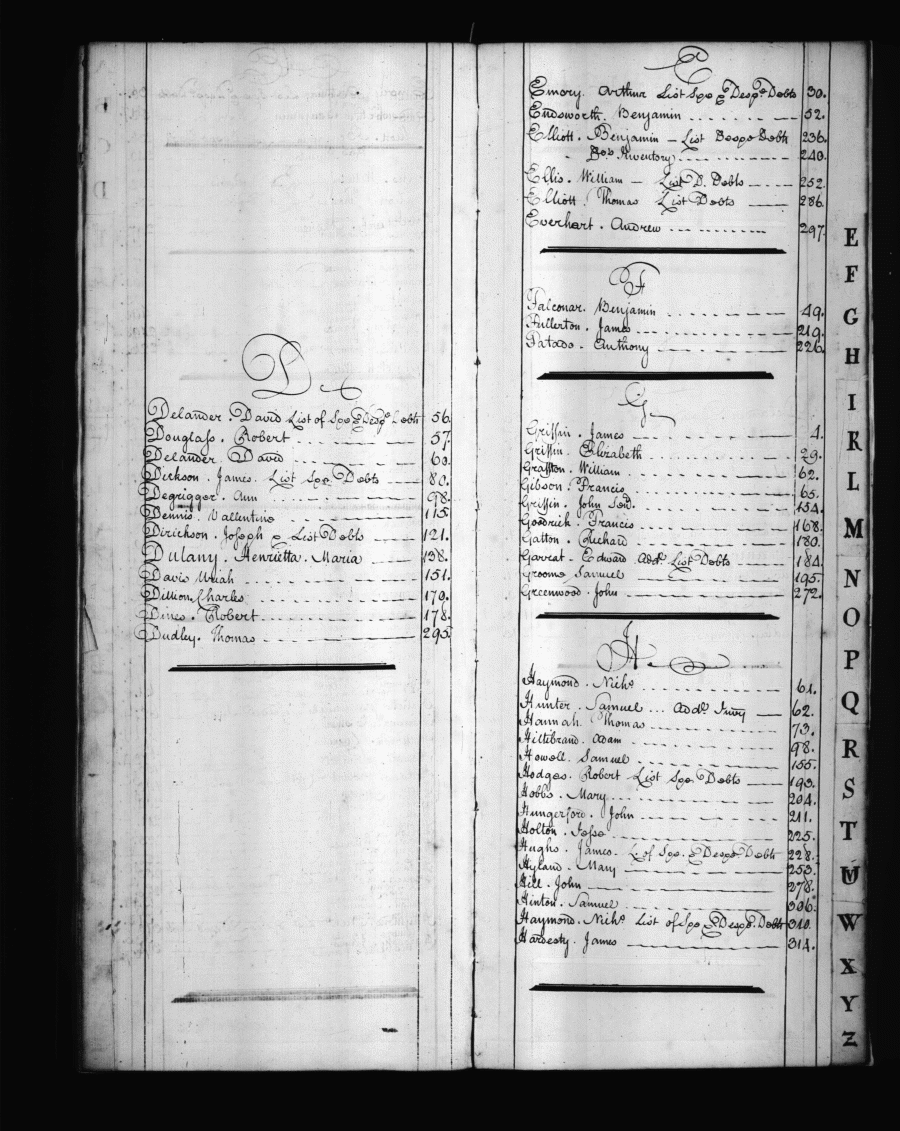 D
Delander. David List of Spe & Despe Debts 56.
Douglass. Robert 57.
Delander David 60.
Dickson. James. List Spe. Debts 80.
Degrigger. Ann 98.
Dennis. Vallentine 115
Dirickson. Joseph List Debts 121.
Dulany. Henrietta. Maria 138.
Davis Uriah 151.
Dillion Charles 170.
Dines. Robert 178.
Dudley. Thomas 295
E
Emory. Arthur List Spe & Despe Debts 30.
Endsworth. Benjamin 52.
Elliott. Benjamin - List Despe Debts 236.
Do. Inventory 240.
Ellis. William - List D. Debts 252
Elliott. Thomas List Debts 286
Everhart. Andrew 297.
F
Falconar. Benjamin 49.
Fullerton. James 219.
Fatado. Anthony 226
G
Griffin. James 4.
Griffin. Elizabeth 29.
Grafton. William 62.
Gibson. Francis 65.
Griffin. John Senr. 154.
Goodrich. Francis 168.
Gatton. Richard 180.
Garreat - Edward Addl. List Debts 184
Groome Samuel 195.
Greenwood. John 272.
H
Haymond. Nichs 61.
Hunter. Samuel Addl. Invy 62.
Hannah Thomas 73.
Hiltibrand. Adam 98.
Howell. Samuel 155.
Hodges. Robert List Spe. Debts 193.
Hobbs. Mary 204.
Hungerford. John 211.
Holton. Jesse 225.
Hughs. James. L of Spe. & Despe. Debts 228.
Hyland. Mary 253.
Hill. John 278.
Hinton. Samuel 306.
Haymond. Nichs List of Spe & Despe. Debts 310.
Hardesty. James 314.
E
F
G
H
I
K
L
M
N
O
P
Q
R
S
T
W
X
Y
Z